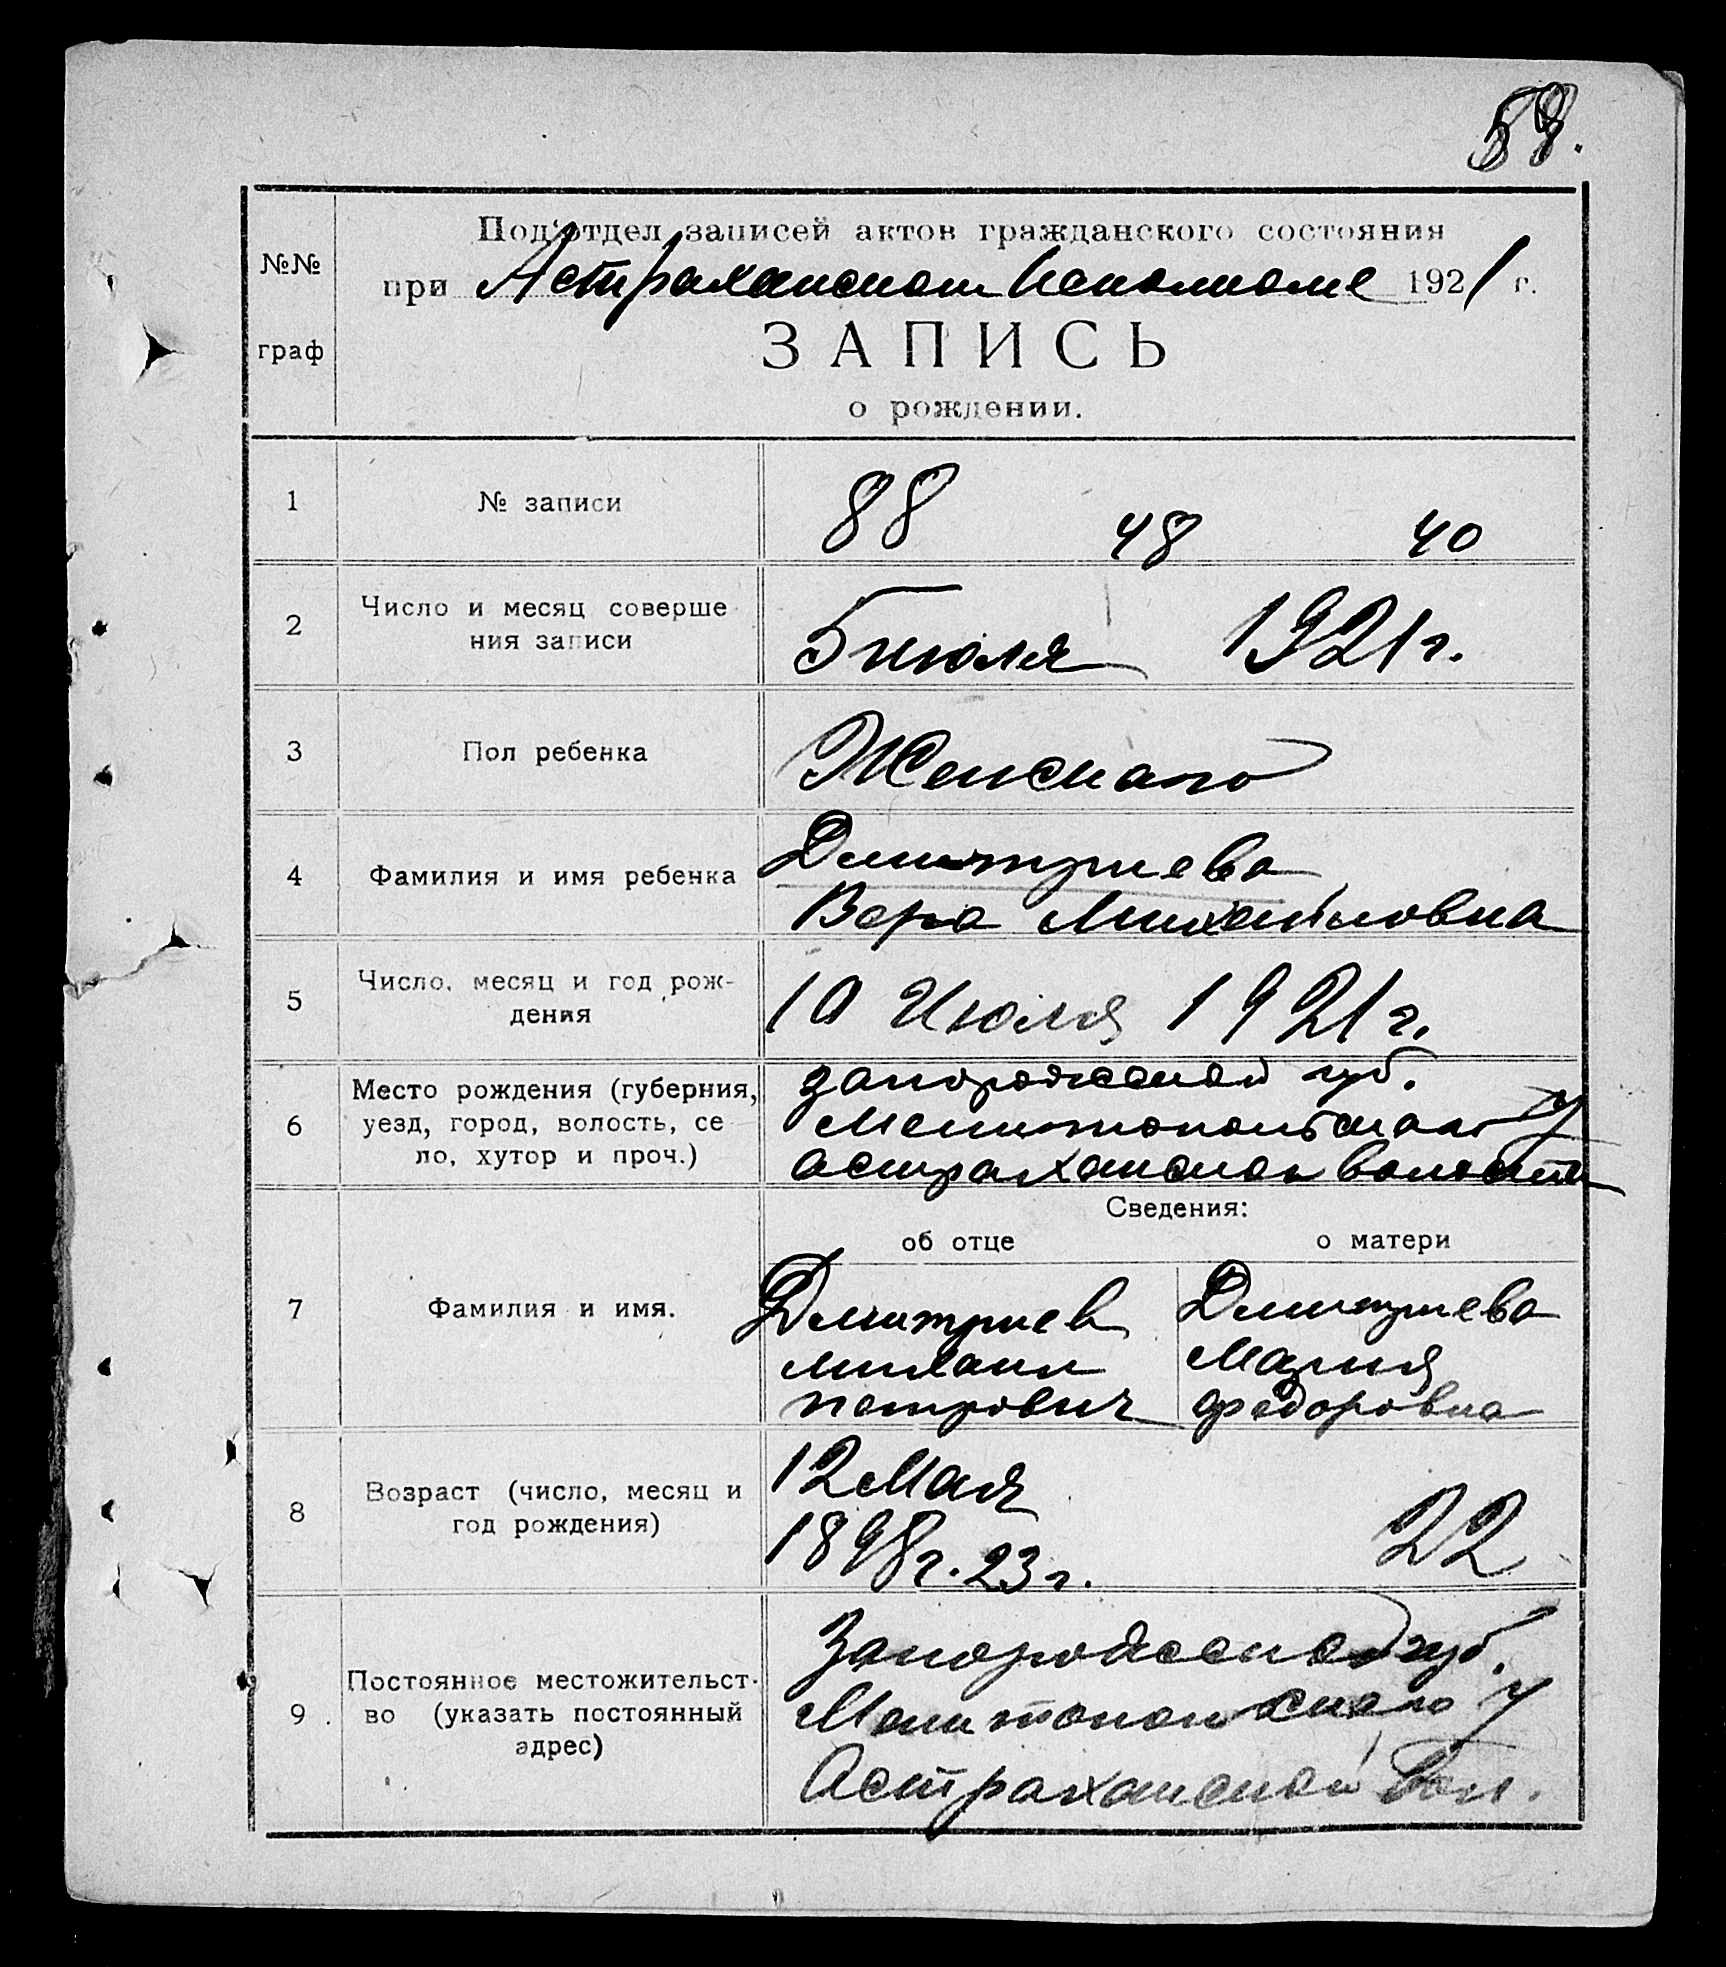 58.
№№ граф
Под‘отдел записей актов гражданского состояния
при Астраханском Исполкоме 1921 г.
ЗАПИСЬ
о рождении.
1 № записи 88 48 40
2 Число и месяц соверше
ния записи
5 июля 1921 г.
3 Пол ребенка Женскаго
4 Фамилия и имя ребенка
Дмитриева
Вера Михайловна
5 Число, месяц и год рож-
дения
10 Июля 1921 г.
6 Место рождения (губерния,
уезд, город, волость, се
ло, хутор и проч.)
запорожской губ.
Мелитопольскаго у
астраханской волости
Сведения:
об отце о матери
7 Фамилия и имя.
Дмитриев
михаил
петрович
Дмитриева
Мария
федоровна
8 Возраст (число, месяц и
год рождения)
12 Мая
1898 г. 23 г.
22
9 Постоянное местожительст-
во (указать постоянный
адрес)
Запорожской губ.
Мелитопольскаго у
Астраханской Вол.